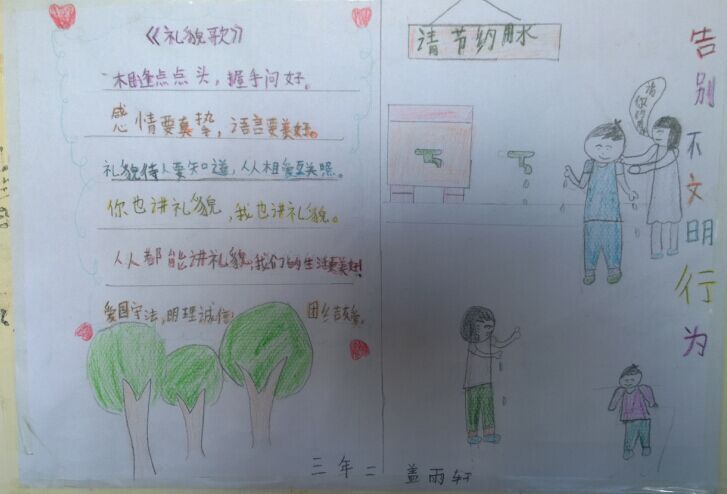 《礼貌歌》
相逢点点头，握手问好。
感情要真挚，语言要美好。
礼貌待人要知道，人人相爱互关照。
你也讲礼貌，我也讲礼貌。
人人都能讲礼貌，我们的生活更美好！
爱国守法，明理诚信，团结友爱。
请节约用水
告别不文明行为
三年二 盖雨轩